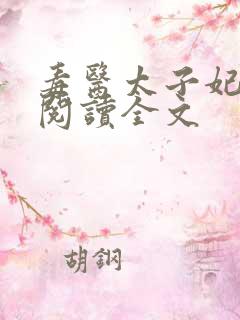 毒醫太子妃
閱讀全文
胡鋼